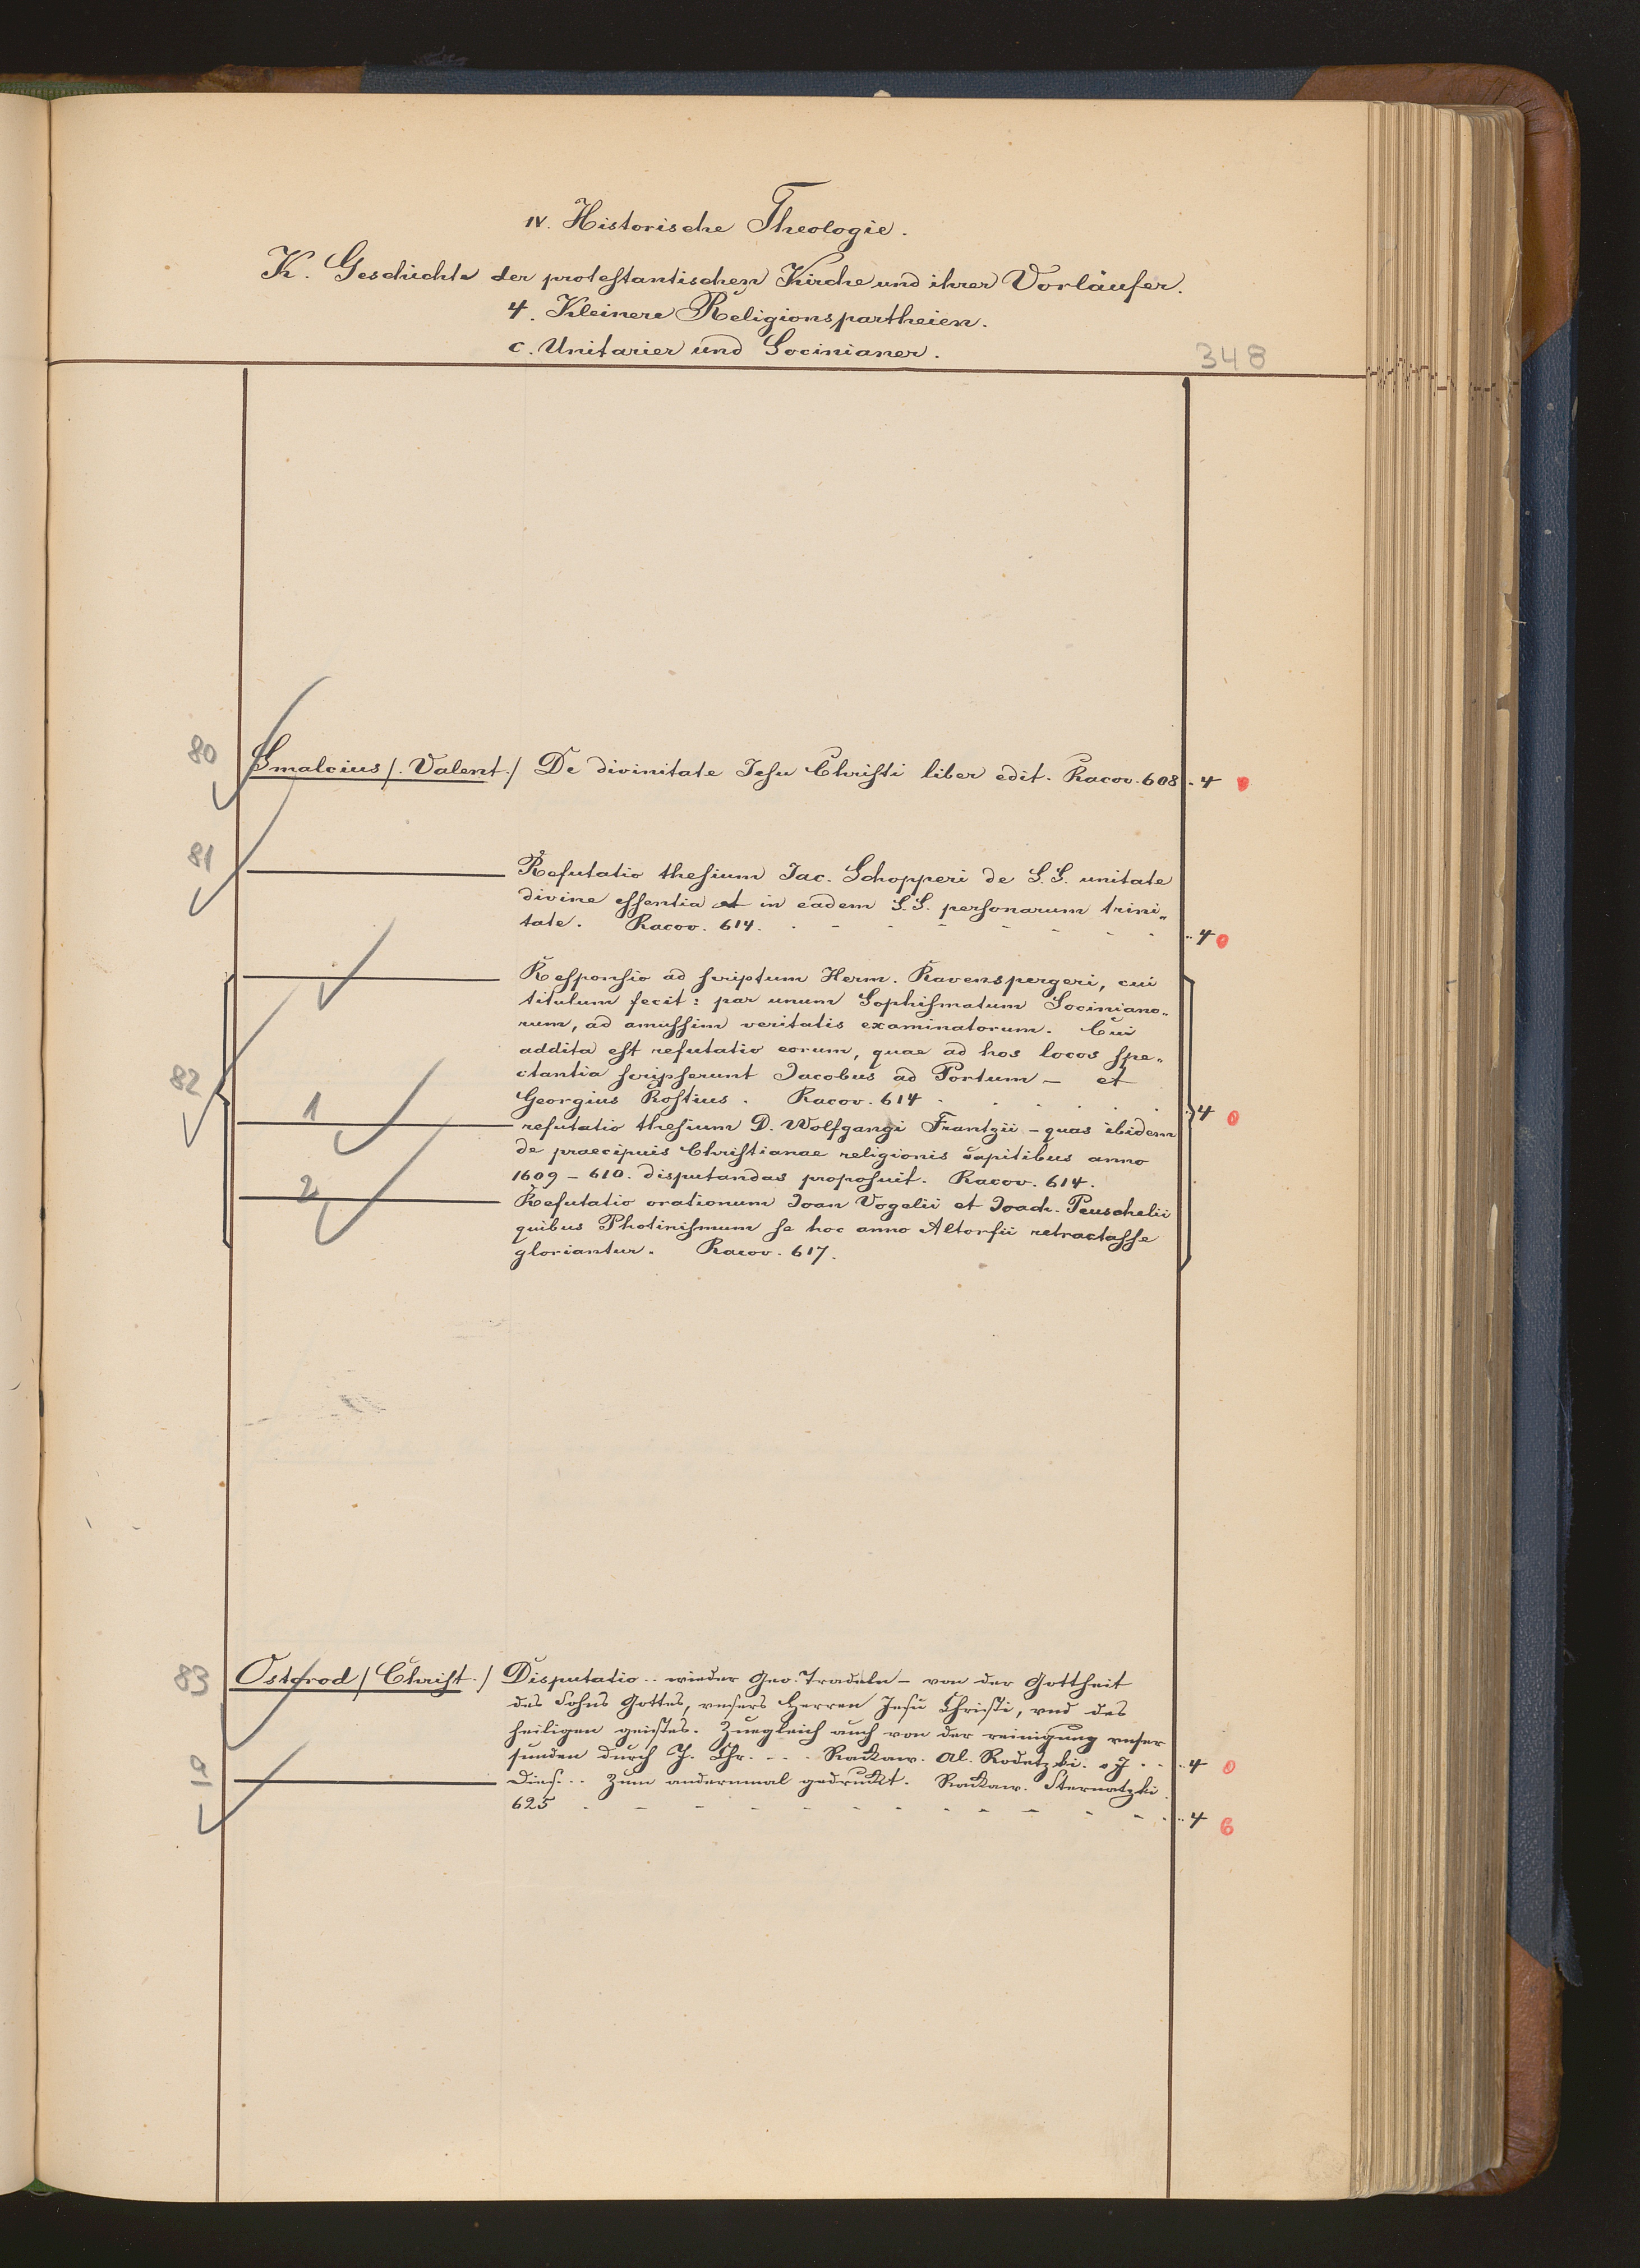 IV. Historische Theologie.
K. Geschichte der protestantischen Kirche und ihrer Vorläufer.
4. Kleinere Religionspartheien.
c. Unitarier und Socinianer.
348
80 Smalcius /. Valent./ De divinitate Jesu Christi liber edit. Racov. 608 . 4 0
81 Refutatio thesium Jac. Schopperi de S.S. unitate
divine essentia et in eadem S.S. personarum trini„
tate. Racov. 614. .. 4 0
82 Responsio ad scriptum Herm. Ravenspergeri, cui
titulum fecit: par unum Sophismatum Sociniano„
rum, ad amussim veritatis examinatorum. Cui
addita est refutatio eorum, quae ad hos locos spe„
ctantia scripserunt Jacobus ad Portum – et
Georgius Rostius. Racov. 614 . 4 0
1 refutatio thesium D. Wolfgangi Frantzii – quas ibidem
de praecipuis Christianae religionis capitibus anno
1609 – 610. disputandas proposuit. Racov. 614.
2 Refutatio orationum Joan Vogelii et Joach. Peuschelii
quibus Photinismum se hoc anno Altorfii retractasse
gloriantur. Racov. 617.
83 Ostorod / Christ. / Disputatio .. wieder Geo. Tradeln – von der Gottheit
des Sohns Gottes, unsers Herren Jesu Christi, und des
heiligen geistes. Zuegleich auch von der reinigung unser
sunden durch J. Chr. - - . Rackaw. Al. Rodetzki. o J . . .. 4 0
Dies. .. Zum andernmal gedruckt. Rackaw. Sternatzki
625 .. 4 6